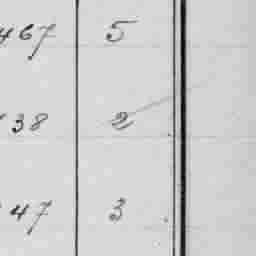 467 5
38 2
47 3